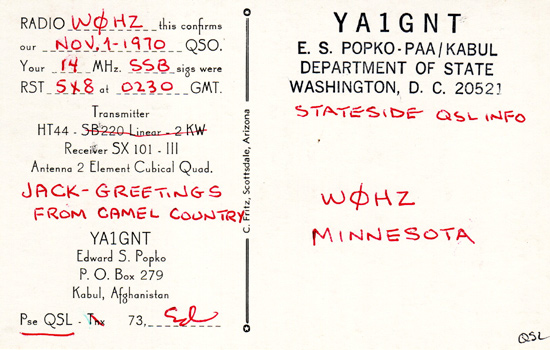 RADIO WØHZ this confirms
our NOV, 1-1970 QSO.
Your 14 MHz. SSB sigs were
RST 5X8 at 0230 GMT.
Transmitter
HT44 - SB220 Linear - 2 KW
Receiver SX 101 - III
Antenna 2 Element Cubical Quad.
JACK-GREETINGS
FROM CAMEL COUNTRY
YA1GNT
Edward S. Popko
P. O. Box 279
Kabul, Afghanistan
Pse QSL - Tnx 73, Ed
C. Fritz, Scottsdale, Arizona
YA1GNT
E. S. POPKO-PAA/KABUL
DEPARTMENT OF STATE
WASHINGTON, D. C. 20521
STATESIDE QSL INFO
WØHZ
MINNESOTA
QSL